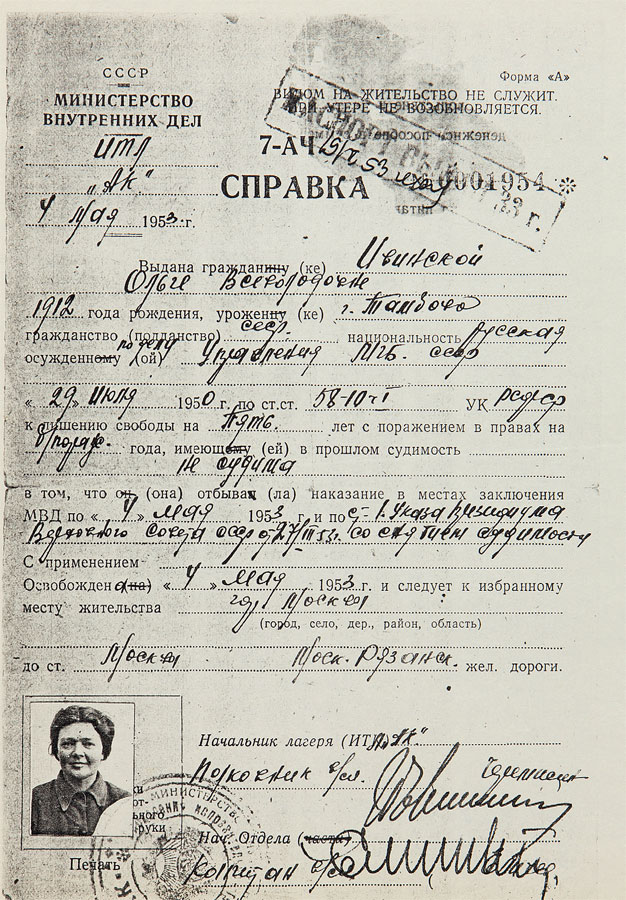 СССР
МИНИСТЕРСТВО
ВНУТРЕННИХ ДЕЛ
ИТЛ
„АК“
4 мая 1953 г.
Форма «А»
ВИДОМ НА ЖИТЕЛЬСТВО НЕ СЛУЖИТ.
ПРИ УТЕРЕ НЕ ВОЗОБНОВЛЯЕТСЯ.
7-АЧ
0001954
СПРАВКА
Выдана гражданину (ке) Ивинской
Ольге Всеволодовне
1912 года рождения, уроженцу (ке) г. Тамбова
гражданство (подданство) ссср. национальность русская
осужденному (ой) по делу Управления МГБ. ссср
« 29 » Июля 1950 г. по ст.ст. 58-10-I УК РСФСР
к лишению свободы на Пять. лет с поражением в правах на
б/пораж. года, имеющему (ей) в прошлом судимость
не судима
в том, что он (она) отбывал (ла) наказание в местах заключения
МВД по « 4 » мая 1953 г. и по с- 1. Указа Президиума
Верховного Совета ссср от 27/III 53г. со снятием судимости
С применением
Освобожден а (на) « 4 » мая 1953 г. и следует к избранному
месту жительства гор. Москва
(город, село, дер., район, область)
до ст. Москва Моск. Рязанск. жел. дороги.
Начальник лагеря (ИТЛ) „АК“
Полковник в/сл.
Нач. Отдела (части)
Капитан в/сл
Печать
руки
МИНИСТЕРСТВО